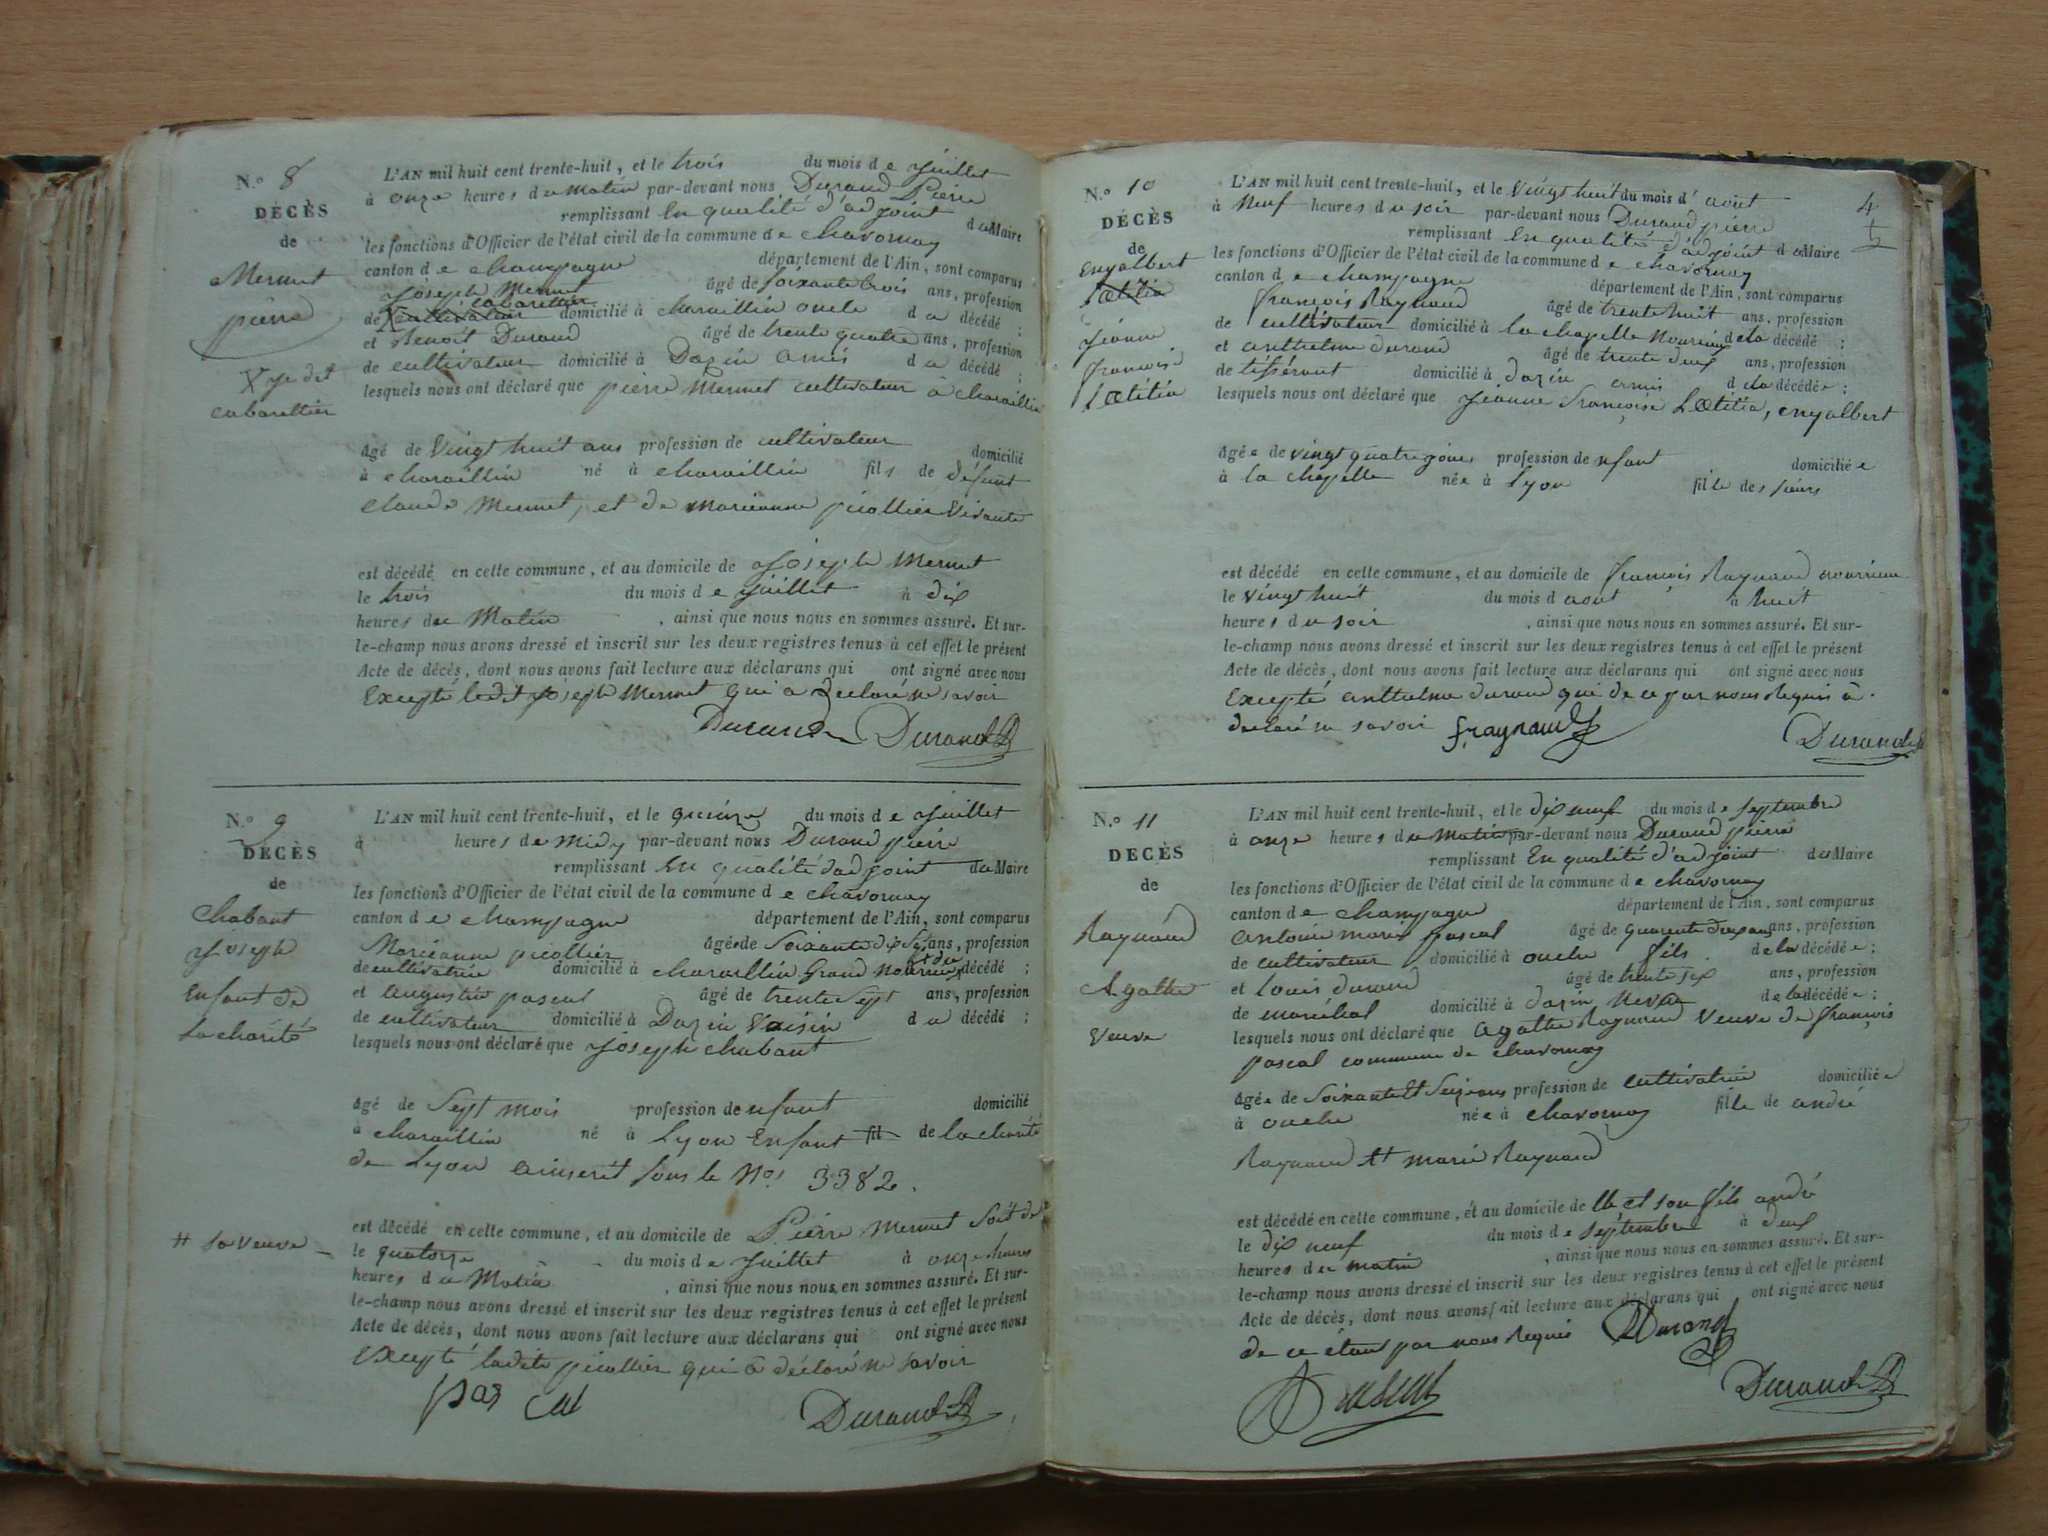 N.° 8
DÉCÈS
de
Mermet
pierre
X je dit
cabarettier
L'AN mil huit cent trente-huit, et le trois du mois de Juillet
à onze heures du matin par-devant nous Durand Pierre
remplissant En qualité d'adjoint du Maire
les fonctions d'Officier de l'état civil de la commune de chavornay
canton de champagne département de l'Ain, sont comparus
Joseph Mermet âgé de soixante trois ans, profession
cabarettier
de cultivateur domicilié à charaillin oncle du décédé ;
et Benoit Durand âgé de trente quatre ans, profession
de cultivateur domicilié à Dazin amis du décédé ;
lesquels nous ont déclaré que pierre Mermet cultivateur à charaillin
âgé de Vingt huit ans profession de cultivateur domicilié
à charaillin né à charaillin fils de défunt
Claude Mermet, et de Marieanne picollier Vivante
est décédé en cette commune, et au domicile de Joseph Mermet
le trois du mois de Juillet à dix
heures du Matin, ainsi que nous nous en sommes assuré. Et sur-
le-champ nous avons dressé et inscrit sur les deux registres tenus à cet effet le présent
Acte de décès, dont nous avons fait lecture aux déclarans qui ont signé avec nous
Excepté ledit Joseph Mermet qui a déclaré ne savoir
Durand Durand
N.° 9
DÉCÈS
de
Chabant
Joseph
Enfant de
la charité
# sa veuve
L'AN mil huit cent trente-huit, et le quinze du mois de Juillet
à heures de Midy par-devant nous Durand pierre
remplissant En qualité dadjoint du Maire
les fonctions d'Officier de l'état civil de la commune de chavornay
canton de champagne département de l'Ain, sont comparus
Marieanne picollier âgée de Soixante dix Sept ans, profession
de cultivatrice domicilié à charaillin Grand Nourrice du décédé ;
et augustin pascal âgé de trente Sept ans, profession
de cultivateur domicilié à Dazin Voisin du décédé ;
lesquels nous ont déclaré que Joseph chabant
âgé de Sept mois profession denfant domicilié
à charaillin né à Lyon Enfant fil de la charité
de Lyon ainserit sous le No. 3382.
est décédé en cette commune, et au domicile de Pierre Mermet Soit de #
le quatorze du mois de Juillet à onze heures
heures du Matin, ainsi que nous nous en sommes assuré. Et sur-
le-champ nous avons dressé et inscrit sur les deux registres tenus à cet effet le présent
Acte de décès, dont nous avons fait lecture aux déclarans qui ont signé avec nous
Excepté ladite picollier qui à déclaré ne savoir
pas cal Durand
4
N.° 10
DÉCÈS
de
Engalbert
Lœtitia
Jeanne
françoise
Lœtitia
L'AN mil huit cent trente-huit, et le vingt huit du mois d'aout
à Neuf heures du soir par-devant nous Durand pierre
remplissant En qualité d'adjoint du Maire
les fonctions d'Officier de l'état civil de la commune de chavornay
canton de champagne département de l'Ain, sont comparus
françois Raynaud âgé de trente huit ans, profession
de cultivateur domicilié à la chapelle Nourricier de la décédé ;
et anthelme durand âgé de trente deux ans, profession
de tisserant domicilié à dazin amis de la décédée ;
lesquels nous ont déclaré que Jeanne françoise Lœtitia, engalbert
âgée de vingt quatre jours profession denfant domiciliée
à la chapelle née à Lyon fille des sieurs
est décédé en cette commune, et au domicile de françois Raynaud nourricier
le vingt huit du mois d aout à huit
heures du soir, ainsi que nous nous en sommes assuré. Et sur-
le-champ nous avons dressé et inscrit sur les deux registres tenus à cet effet le présent
Acte de décès, dont nous avons fait lecture aux déclarans qui ont signé avec nous
Excepté anthelme durand qui de ce par nous Requis à
declaré ne savoir fraynaud Durand
N.° 11
DÉCÈS
de
Raynaud
Agathe
Veuve
L'AN mil huit cent trente-huit, et le dix neuf du mois de septembre
à onze heures du matin par-devant nous Durand pierre
remplissant En qualité d'adjoint du Maire
les fonctions d'Officier de l'état civil de la commune de chavornay
canton de champagne département de l'Ain, sont comparus
Antoine marie pascal âgé de quarante deux ans ans, profession
de cultivateur domicilié à ouche fils de la décédée ;
et Louis durand âgé de trente six ans, profession
de maréchal domicilié à dazin Neveu de la décédée ;
lesquels nous ont déclaré que agathe Raynaud Veuve de françois
pascal commune de chavornay
âgée de Soixante et Seize ans profession de cultivatrice domiciliée
à ouche née à chavornay fille de andré
Raynaud et marie Raynaud
est décédé en cette commune, et au domicile de lle et son fils andré
le dix neuf du mois de septembre à deux
heures du matin, ainsi que nous nous en sommes assuré. Et sur-
le-champ nous avons dressé et inscrit sur les deux registres tenus à cet effet le présent
Acte de décès, dont nous avons fait lecture aux déclarans qui ont signé avec nous
de ce étant par nous Requis Durand
Durand